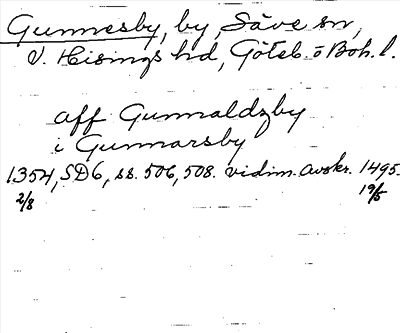 Gunnesby, by, Säve sn,
V. Hisings hd, Göteb. o Boh. l.
aff Gunnaldzby
i Gunnarsby
1354, SD6, ss. 506, 508. vidim. avskr. 1495.
2/8 19/5